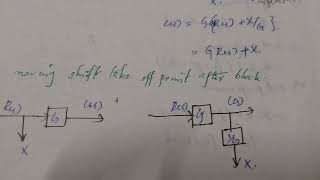 C(s) = G{R(s) + X/G}
= G R(s) + X.
moving shift take off point after block
R(s) G C(s)
X
R(s) G C(s)
1/G
X.